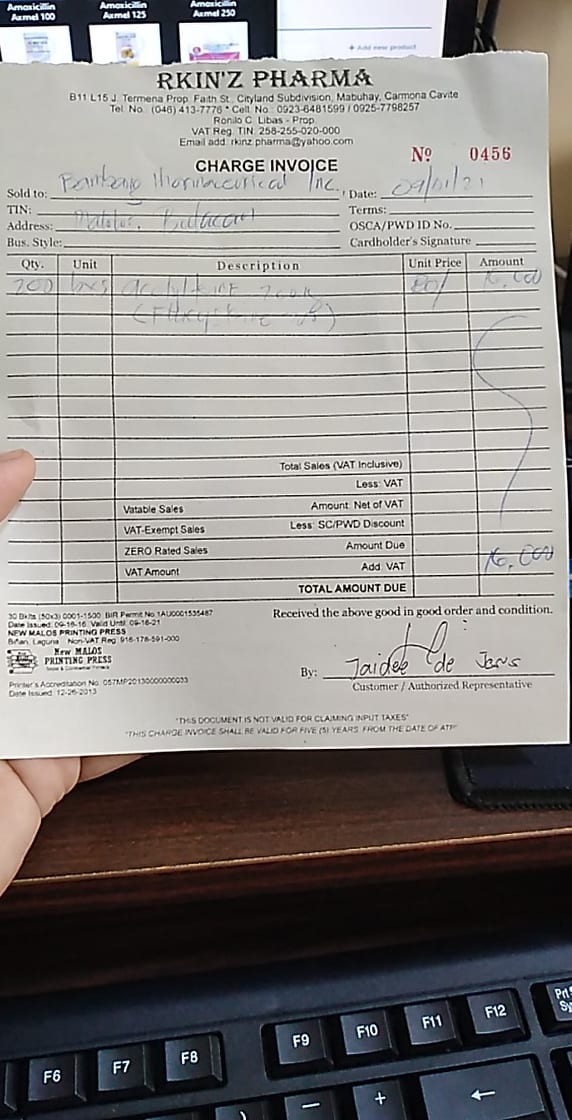 Amoxicillin Axmel 100
Amoxicillin Axmel 125
Amoxicillin Axmel 250
+ Add new product
RKIN'Z PHARMA
B11 L15 J. Termena Prop. Faith St., Cityland Subdivision, Mabuhay, Carmona Cavite
Tel. No.: (046) 413-7776 * Cell. No.: 0923-6481599 / 0925-7798257
Ronilo C. Libas - Prop.
VAT Reg. TIN: 258-255-020-000
Email add: rkinz.pharma@yahoo.com
Nº 0456
CHARGE INVOICE
Sold to: Pharmaceutical Inc. Date: 09/01/21
TIN: Terms:
Address: Malolos, Bulacan OSCA/PWD ID No.
Bus. Style: Cardholder's Signature
Qty. Unit Description Unit Price Amount
200 bxs 80/ 16,000
Total Sales (VAT Inclusive)
Less: VAT
Vatable Sales Amount: Net of VAT
VAT-Exempt Sales Less: SC/PWD Discount
ZERO Rated Sales Amount Due 16,000
VAT Amount Add: VAT
TOTAL AMOUNT DUE
30 Bklts (50x3) 0001-1500 BIR Permit No.1AU0001535487
Date Issued: 09-16-16 Valid Until: 09-16-21
NEW MALOS PRINTING PRESS
Biñan, Laguna Non-VAT Reg. 916-178-591-000
New MALOS
PRINTING PRESS
Printer's Accreditation No. 057MP20130000000033
Date Issued: 12-26-2013
Received the above good in good order and condition.
By: Jaidee de Jesus
Customer / Authorized Representative
"THIS DOCUMENT IS NOT VALID FOR CLAIMING INPUT TAXES"
"THIS CHARGE INVOICE SHALL BE VALID FOR FIVE (5) YEARS FROM THE DATE OF ATP"
F6 F7 F8 F9 F10 F11 F12